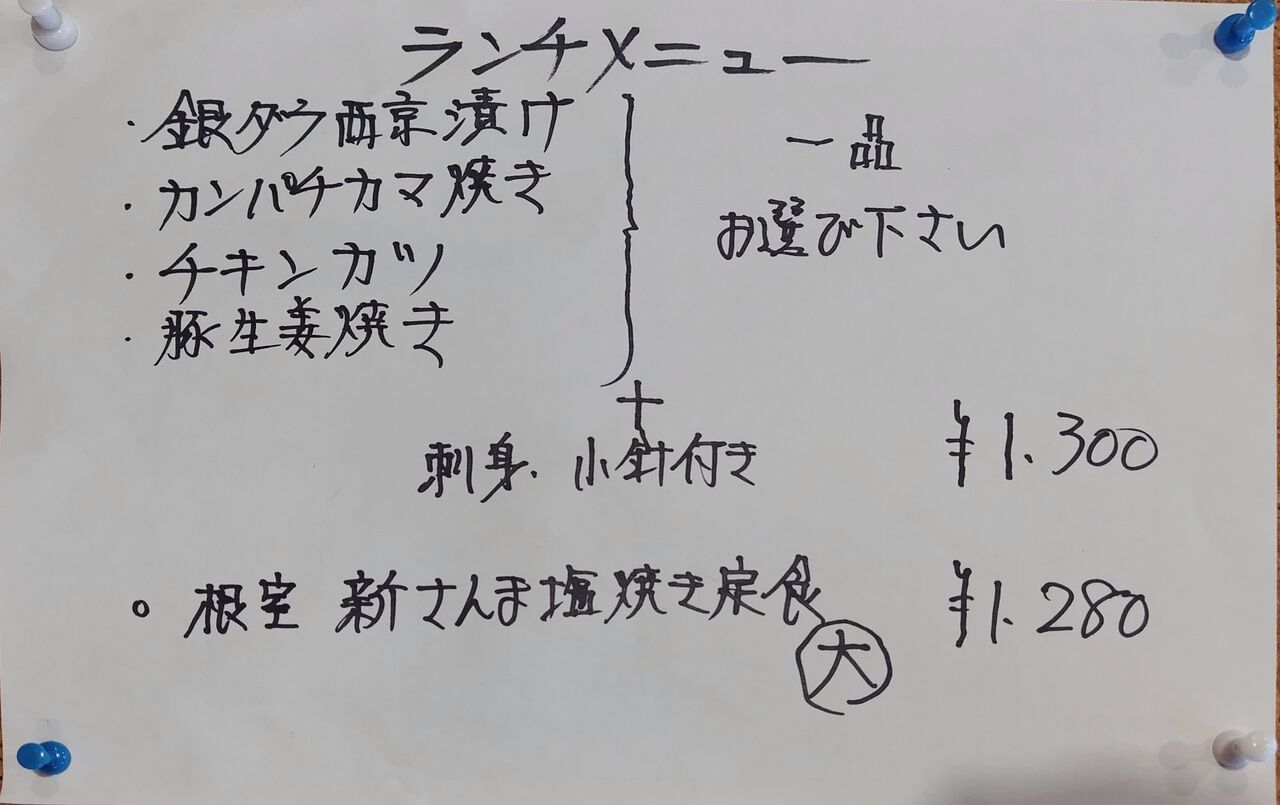 ランチメニュー
・銀ダラ西京漬け
・カンパチカマ焼き
・チキンカツ
・豚生姜焼き
一品
お選び下さい
＋
刺身、小鉢付き ¥1.300
○ 根室 新さんま塩焼き定食 ¥1.280
大